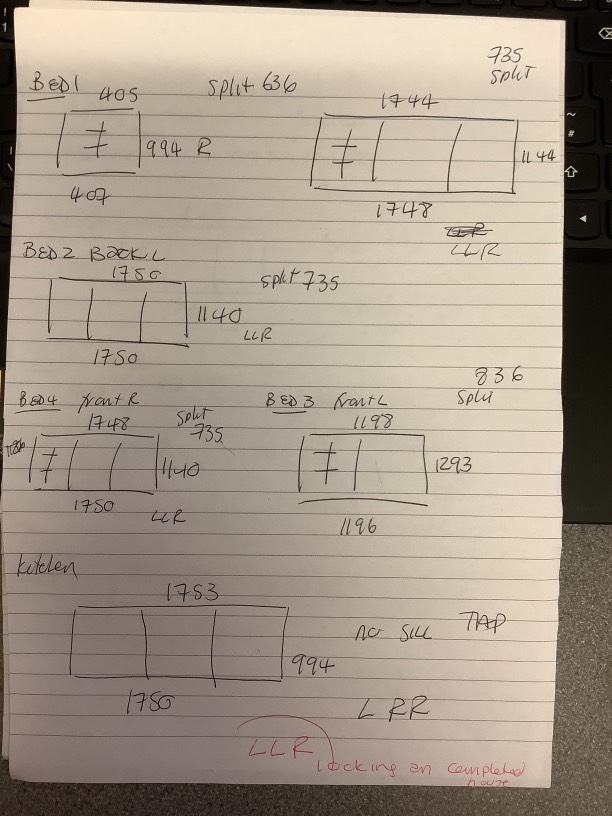 735
SPLIT
BED1 405 Split 636
1744
994 R
1144
407
1748
LLR
BED2 BACK L
1750 split 735
1140
LLR
1750
836
BED4 front R BED 3 front L Split
1748 Split 1198
735
1140 1293
1750 LLR
1196
kitchen
1753
NO SILL TAP
994
1750 LRR
LLR
locking on completed
house